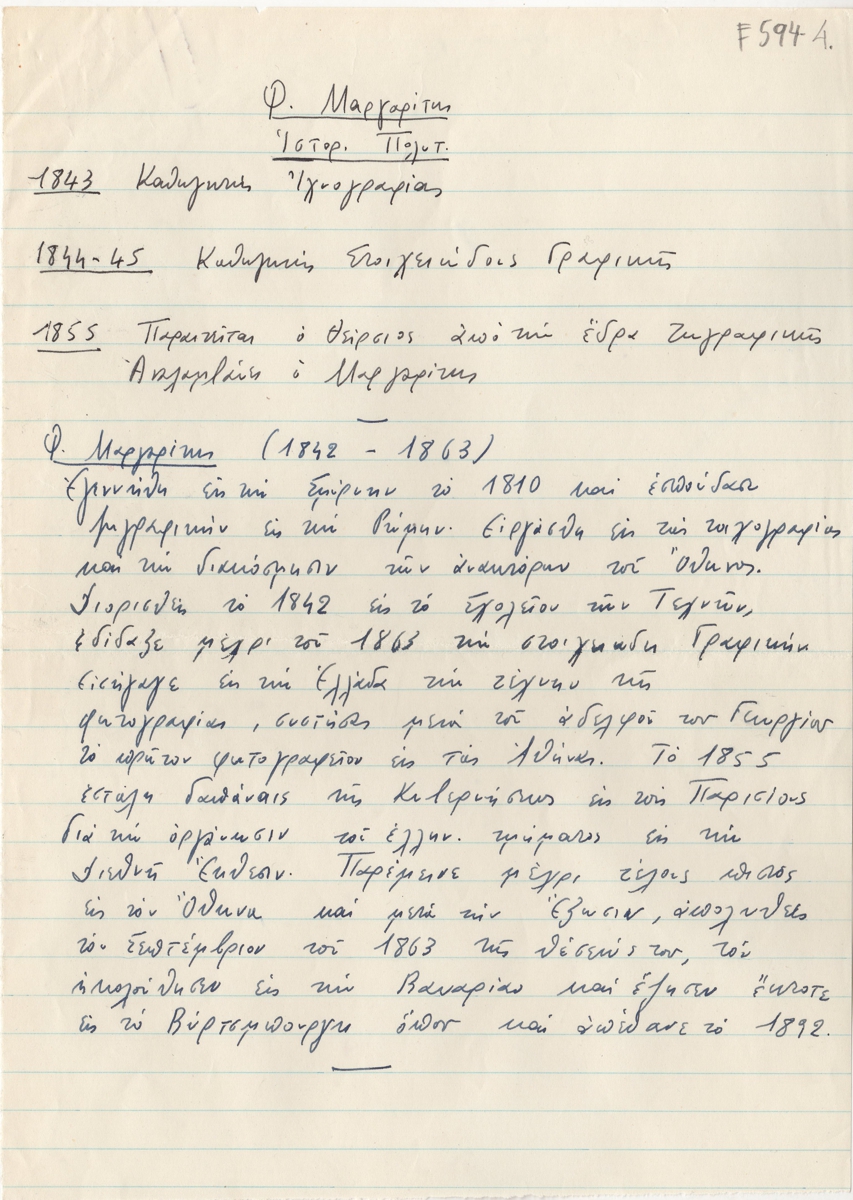 F594 4.
Φ. Μαργαρίτης
Ἱστορ. Πολυτ.
1843 Καθηγητὴς Ἰχνογραφίας
1844-45 Καθηγητὴς Στοιχειώδους Γραφικῆς
1855 Παραιτεῖται ὁ Θείρσιος ἀπὸ τὴν ἕδρα ζωγραφικῆς
Ἀναλαμβάνει ὁ Μαργαρίτης
Φ. Μαργαρίτης (1842 - 1863)
Ἐγεννήθη εἰς τὴν Σμύρνην τὸ 1810 καὶ ἐσπούδασε
ζωγραφικὴν εἰς τὴν Ρώμην. Εἰργάσθη εἰς τὰς τοιχογραφίας
καὶ τὴν διακόσμησιν τῶν ἀνακτόρων τοῦ Ὄθωνος.
Διορισθεὶς τὸ 1842 εἰς τὸ Σχολεῖον τῶν Τεχνῶν,
ἐδίδαξε μέχρι τοῦ 1863 τὴν στοιχειώδη Γραφικὴν
Εἰσήγαγε εἰς τὴν Ἑλλάδα τὴν τέχνην τῆς
φωτογραφίας, συστήσας μετὰ τοῦ ἀδελφοῦ του Γεωργίου
τὸ πρῶτον φωτογραφεῖον εἰς τὰς Ἀθήνας. Τὸ 1855
ἐστάλη δαπάναις τῆς Κυβερνήσεως εἰς τοὺς Παρισίους
διὰ τὴν ὀργάνωσιν τοῦ ἑλλην. τμήματος εἰς τὴν
Διεθνῆ Ἔκθεσιν. Παρέμεινε μέχρι τέλους πιστὸς
εἰς τὸν Ὄθωνα καὶ μετὰ τὴν Ἔξωσιν, ἀπολυθεὶς
τὸν Σεπτέμβριον τοῦ 1863 τῆς θέσεώς του, τὸν
ἠκολούθησεν εἰς τὴν Βαυαρίαν καὶ ἔζησεν ἔκτοτε
εἰς τὸ Βύρτσμπουργκ ὅπου καὶ ἀπέθανε τὸ 1892.